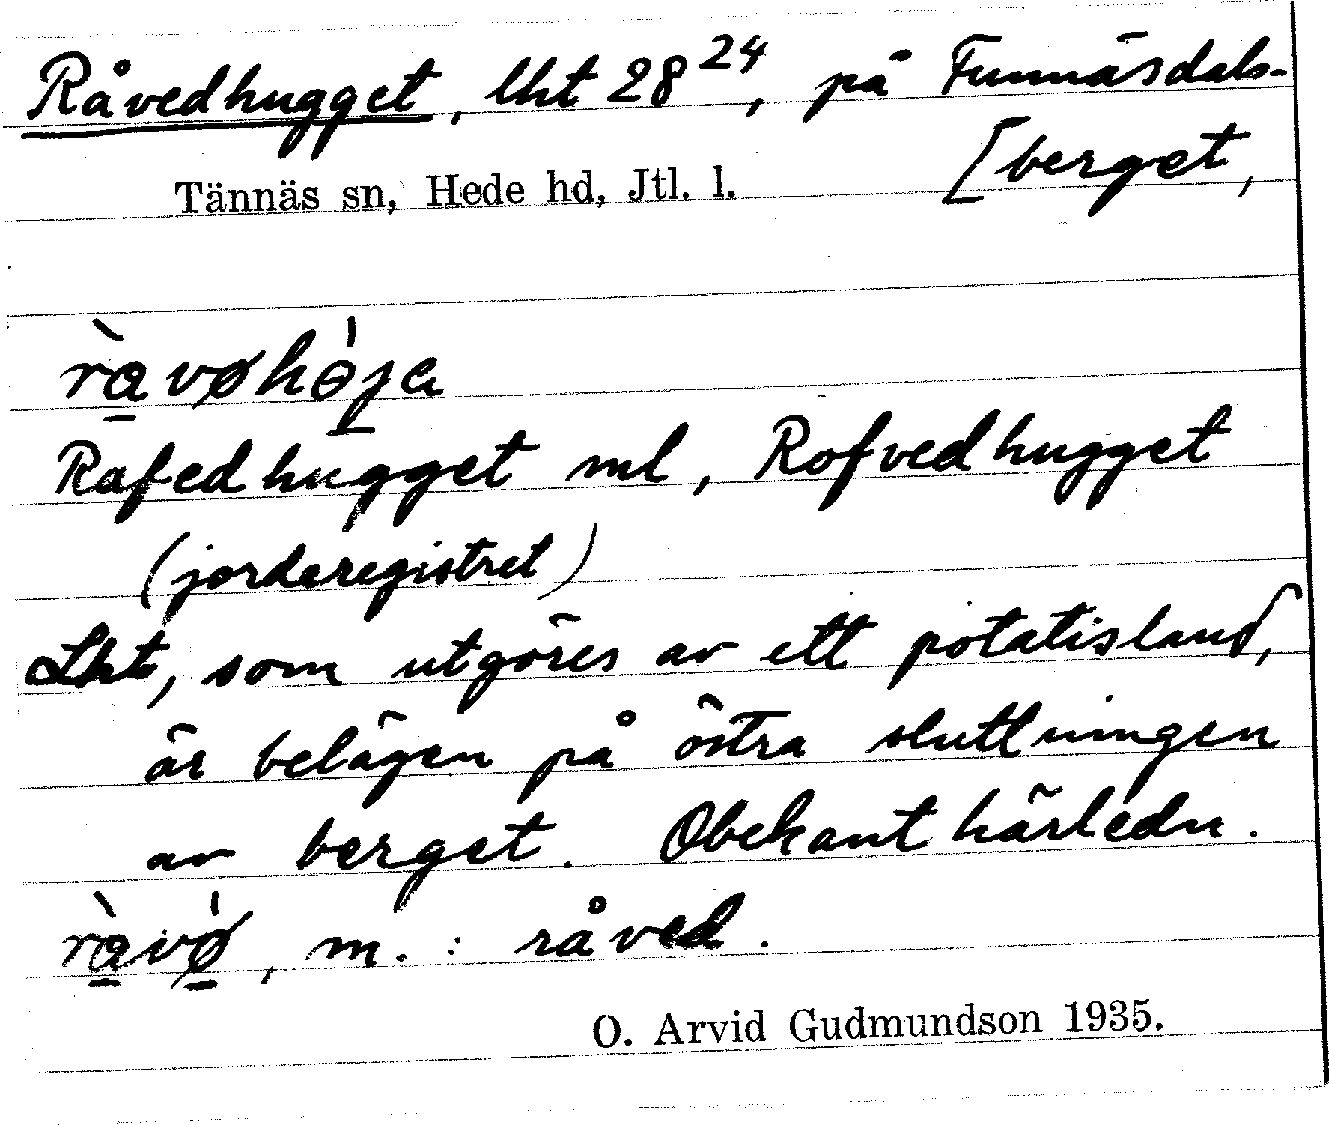 Råvedhugget, lht 28²⁴, på Funnäsdals-
[berget,
Tännäs sn, Hede hd, Jtl. l.
rà̱vøhө̱́ʒa
Rafedhugget ml, Rofvedhugget
(jorderegistret)
Lht, som utgöres av ett potatisland,
är belägen på östra sluttningen
av berget. Obekant härledn.
rà̱vǿ̱, m. : råved.
O. Arvid Gudmundson 1935.